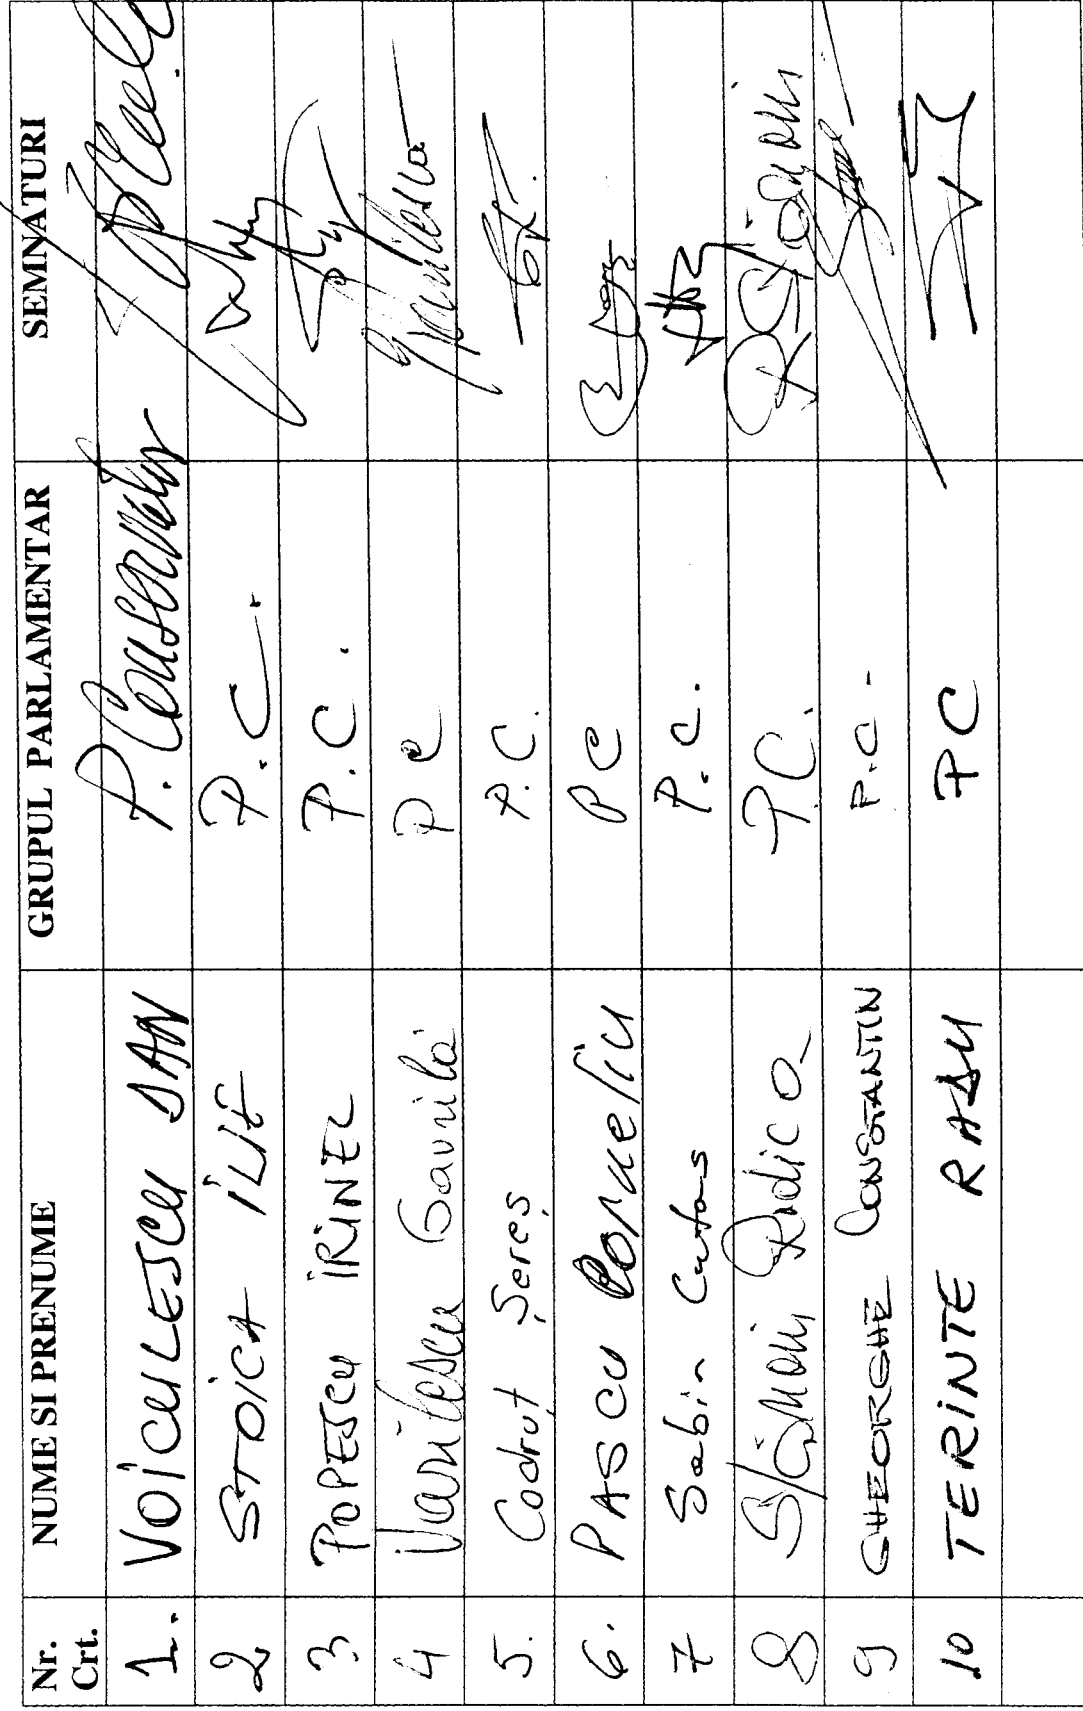 Nr. Crt. NUME SI PRENUME GRUPUL PARLAMENTAR SEMNATURI
1. VOICULESCU DAN P. Conservator
2 STOICA ILIE P.C.
3 POPESCU IRINEL P.C.
4 Vasilescu Gavrilă PC
5. Codruț Șereș P.C.
6. PASCU Corneliu PC
7 Sabin Cutaș P.C.
8 Stănoiu Rodica P.C.
9 GHEORGHE CONSTANTIN P.C.
10 TERINTE RADU PC